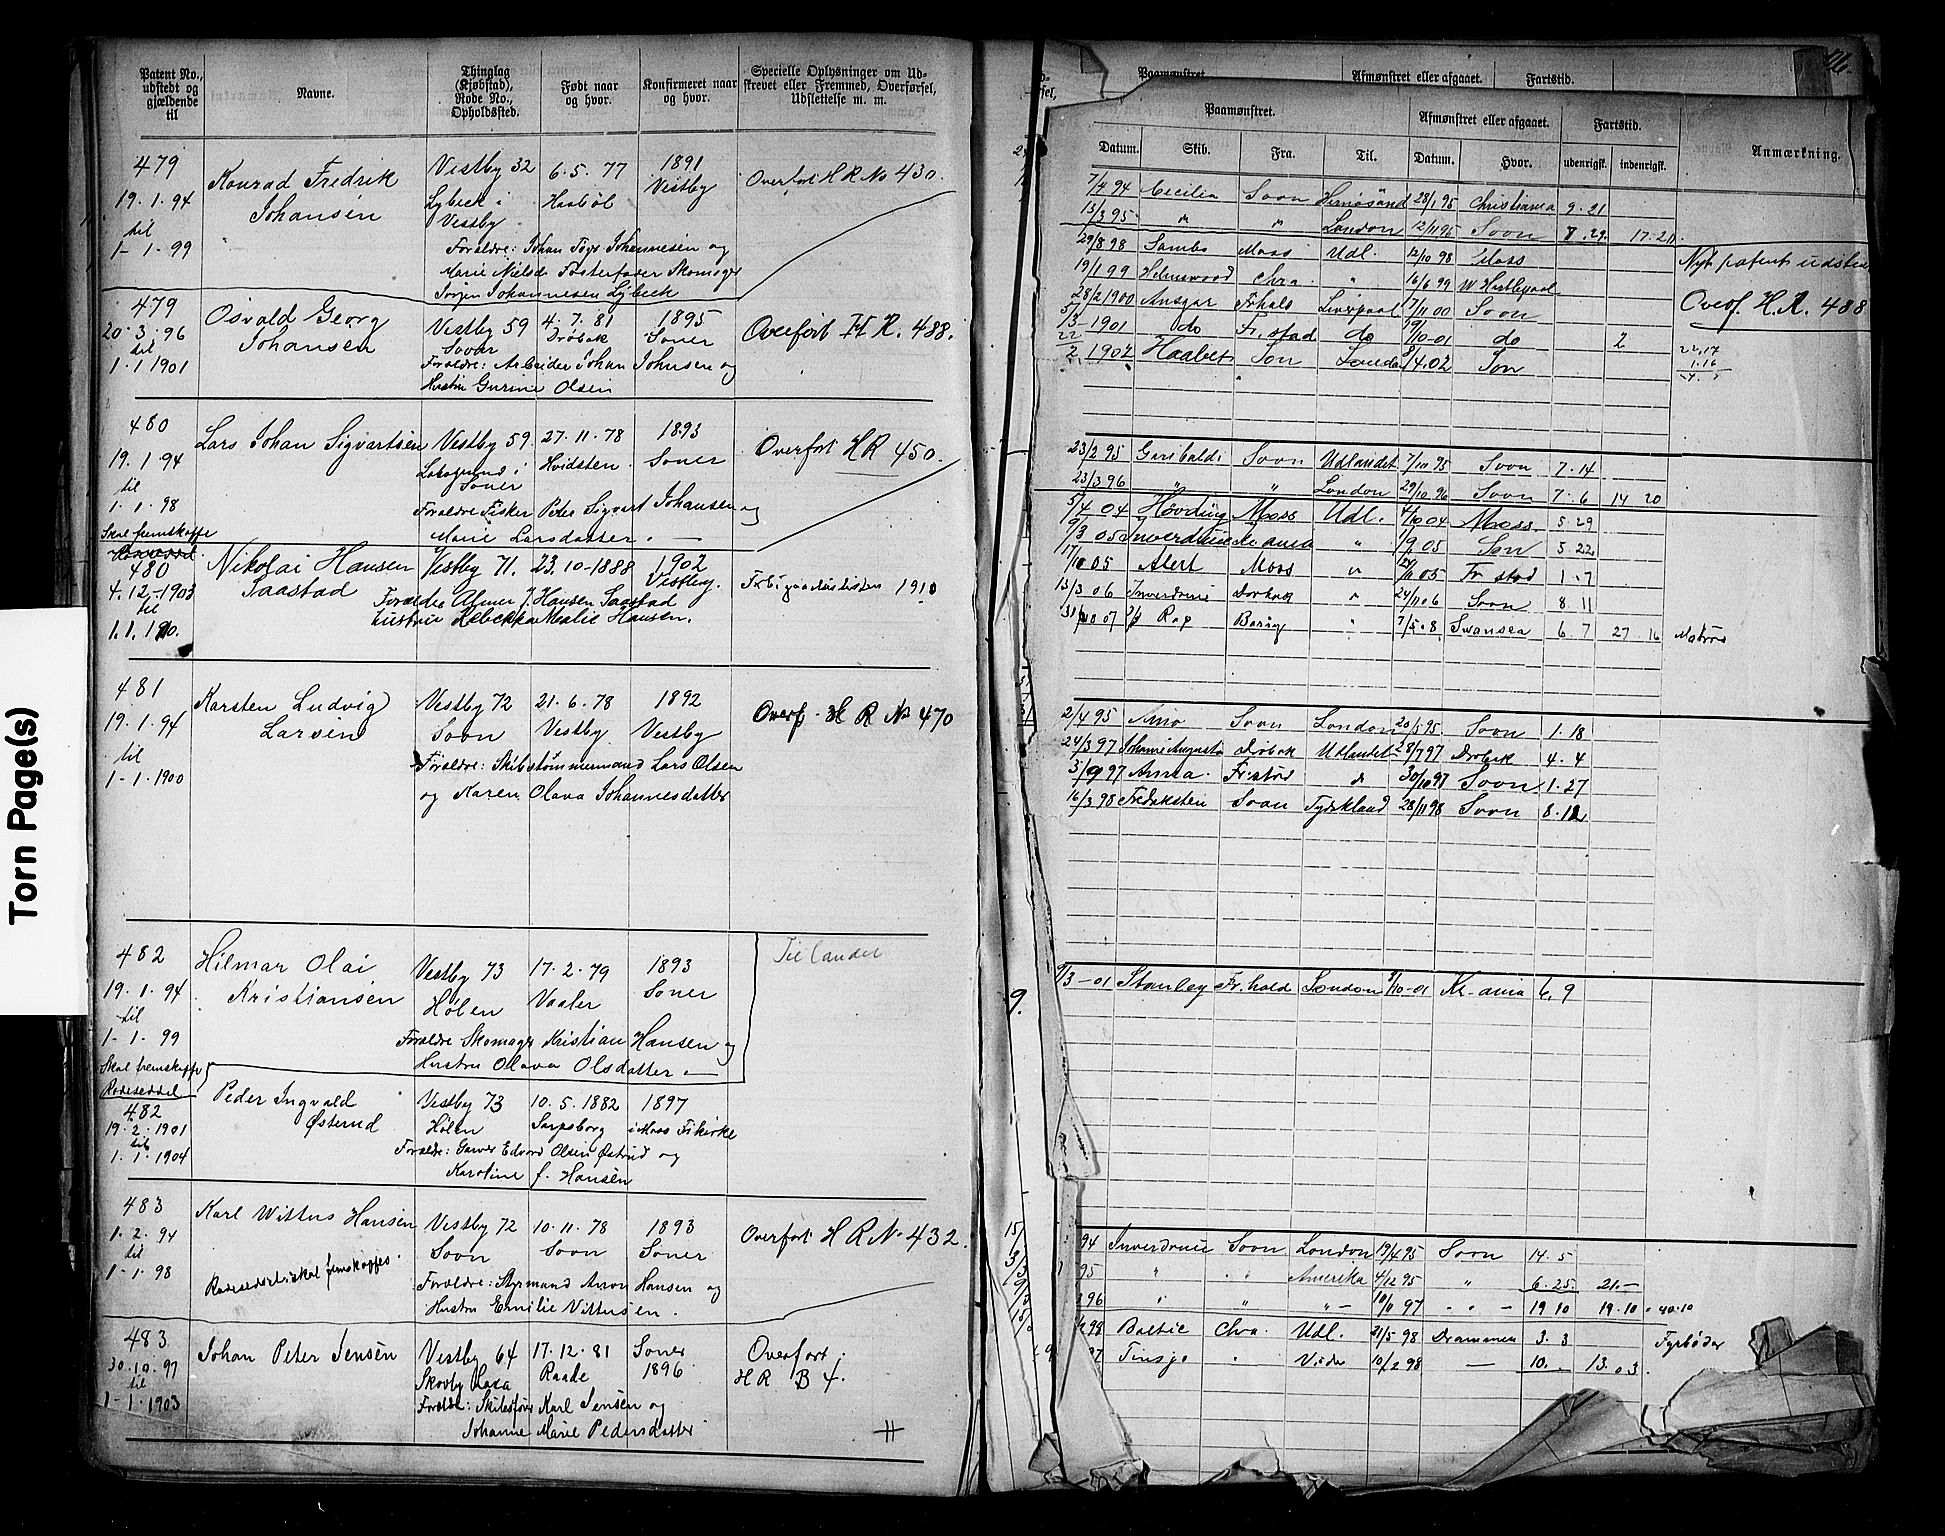 Torn Page(s)
Patent No., udstedt og gjældende til
Navne.
Thinglag (Kjøbstad), Rode No., Opholdssted.
Født naar og hvor.
Konfirmeret naar og hvor.
Specielle Oplysninger om Udskrevet eller Fremmed, Overførsel, Udslettelse m. m.
479 Konrad Fredrik Vestby 32 6.5.77 1891 Overført H R No 430.
19.1.94 Johansen Lybeck i Haabøl Vestby
til Vestby
1-1.99 Forældre: Johan Johannesen og
Marie Nielsd Fosterfader Skomager
Johannesen Lybeck
479 Osvald Georg Vestby 59 4.7.81 1895 Overført H. R. 488.
20.3.96 Johansen Soon Drøbak Soner
til Forældre: Arbeider Johan Johnsen og
1.1 1901 Hustru Gurine Olsen
480 Lars Johan Sigvartsen Vestby 59 27.11.78 1893 Overført H R 450.
19.1.94 Hvidsten Soner
til Soner
1.1.98 Forældre Fisker Peter Sigvart Johansen og
Skal fremskaffe Marie Larsdatter.
480 Nikolai Hansen Vestby 71. 23.10-1888 1902
4.12.-1903 Saastad Vestby. 1910
til Forældre J. Hansen Saastad
1.1.10. Hustru Rebekka Hansen.
481 Karsten Ludvig Vestby 72 21.6.78 1892 Overf. H R No 470
19.1.94 Larsen Soon Vestby Vestby
til Forældre: Skibstømmermand Lars Olsen
1-1.1900 og Karen Olava Johannesdatter
482 Hilmar Olai Vestby 73 17.2.79 1893 Til landet
19.1.94 Kristiansen Hølen Vaaler Soner
til
1-1.99 Forældre Skomager Kristian Hansen og
Skal fremskaffe Hustru Olava Olsdatter.
Rodeseddel
482 Peder Ingvald Vestby 73 10.5.1882 1897
19.2.1901 Østerud Hølen Sarpsborg i Moss Fkirke
til Forældre: Garver Edvard Olsen Østrud og
1.1.1904 Karoline f. Hansen
483 Karl Wittus Hansen Vestby 72 10.11.78 1893 Overført H R No 432.
1.2.94 Soon Soon Soner
til Rodeseddel skal fremskaffes.
1-1.98 Forældre: Styrmand Anton Hansen og
Hustru Emilie Vittusen.
483. Johan Peter Jensen Vestby 64 17.12.81 Soner Overført
30.10.97 Skovby Raade 1896 H R B 4.
til
1-1.1903 Forældre: Skibsfører Karl Jensen og
Johanne Marie Pedersdatter
Paamønstret. Afmønstret eller afgaaet. Fartstid.
Paamønstret. Afmønstret eller afgaaet. Fartstid. Anmærkning.
Datum. Skib. Fra. Til. Datum. Hvor. udenrigsk. indenrigsk.
7/4 94 Cecilia Soon Hernøsand 28/1 95 Christiania 9.21
13/3 95 " " London 12/11 95 Soon 7.29. 17.21.
29/8 98 Sambo Moss Udl. 12/10 98 Moss Nyt patent udsted
19/1 99 Chra " 16/6 99 W. Hartlepool
28/2 1900 Ansgar Frhals Liverpool 7/11 00 Soon Overf. H.R. 488
1901 do Fr.stad do 19/10-01 do 2
1902 Haabet Son London 8/4.02 Son
23/2 95 Garibaldi Soon Udlandet 7/10 95 Soon 7.14
23/3 96 " " London 29/10 96 Soon 7.6 14 20
5/4 04 Høvding Moss Udl. 4/10 04 Moss 5 29
19/3 05 Inverdruie Kr.ania " 9/9 05 Son 5 22
17/10 05 Alert Moss " 05 Fr stad 1.7
13/3 06 Inverdruie Drøbak " 24/11 06 Soon 8.11
07 Rap " 7/5.08 Swansea 6.7 27.16 Matros
2/4 95 Arno Soon London 20/5 95. Soon 1.18
24/3 97 Johanne Augusta Drøbak Udlandet 28/7 97 Drøbak 4.4
3/9 97 Anna. Fr.stad " 30/10 97 Soon 1.27
16/3 98 Fredriksten Soon Tyskland 28/11 98 Soon 8.12
9/3-01 Stanley Fr.hald London /10-01 Kr-ania 6.9
94 Inverdruie Soon London 19/4 95 Soon 14.5
95 " " Amerika 4/12 95 " 6.25 21.-
96 " " " 10/11 97 " 19 10 19.10 40.10
98 Baltic Chra. Udl. 21/5 98 Drammen 3.3 Fyrbøder
97 Tinsjø " 10/2 98 — 10. 13.03.